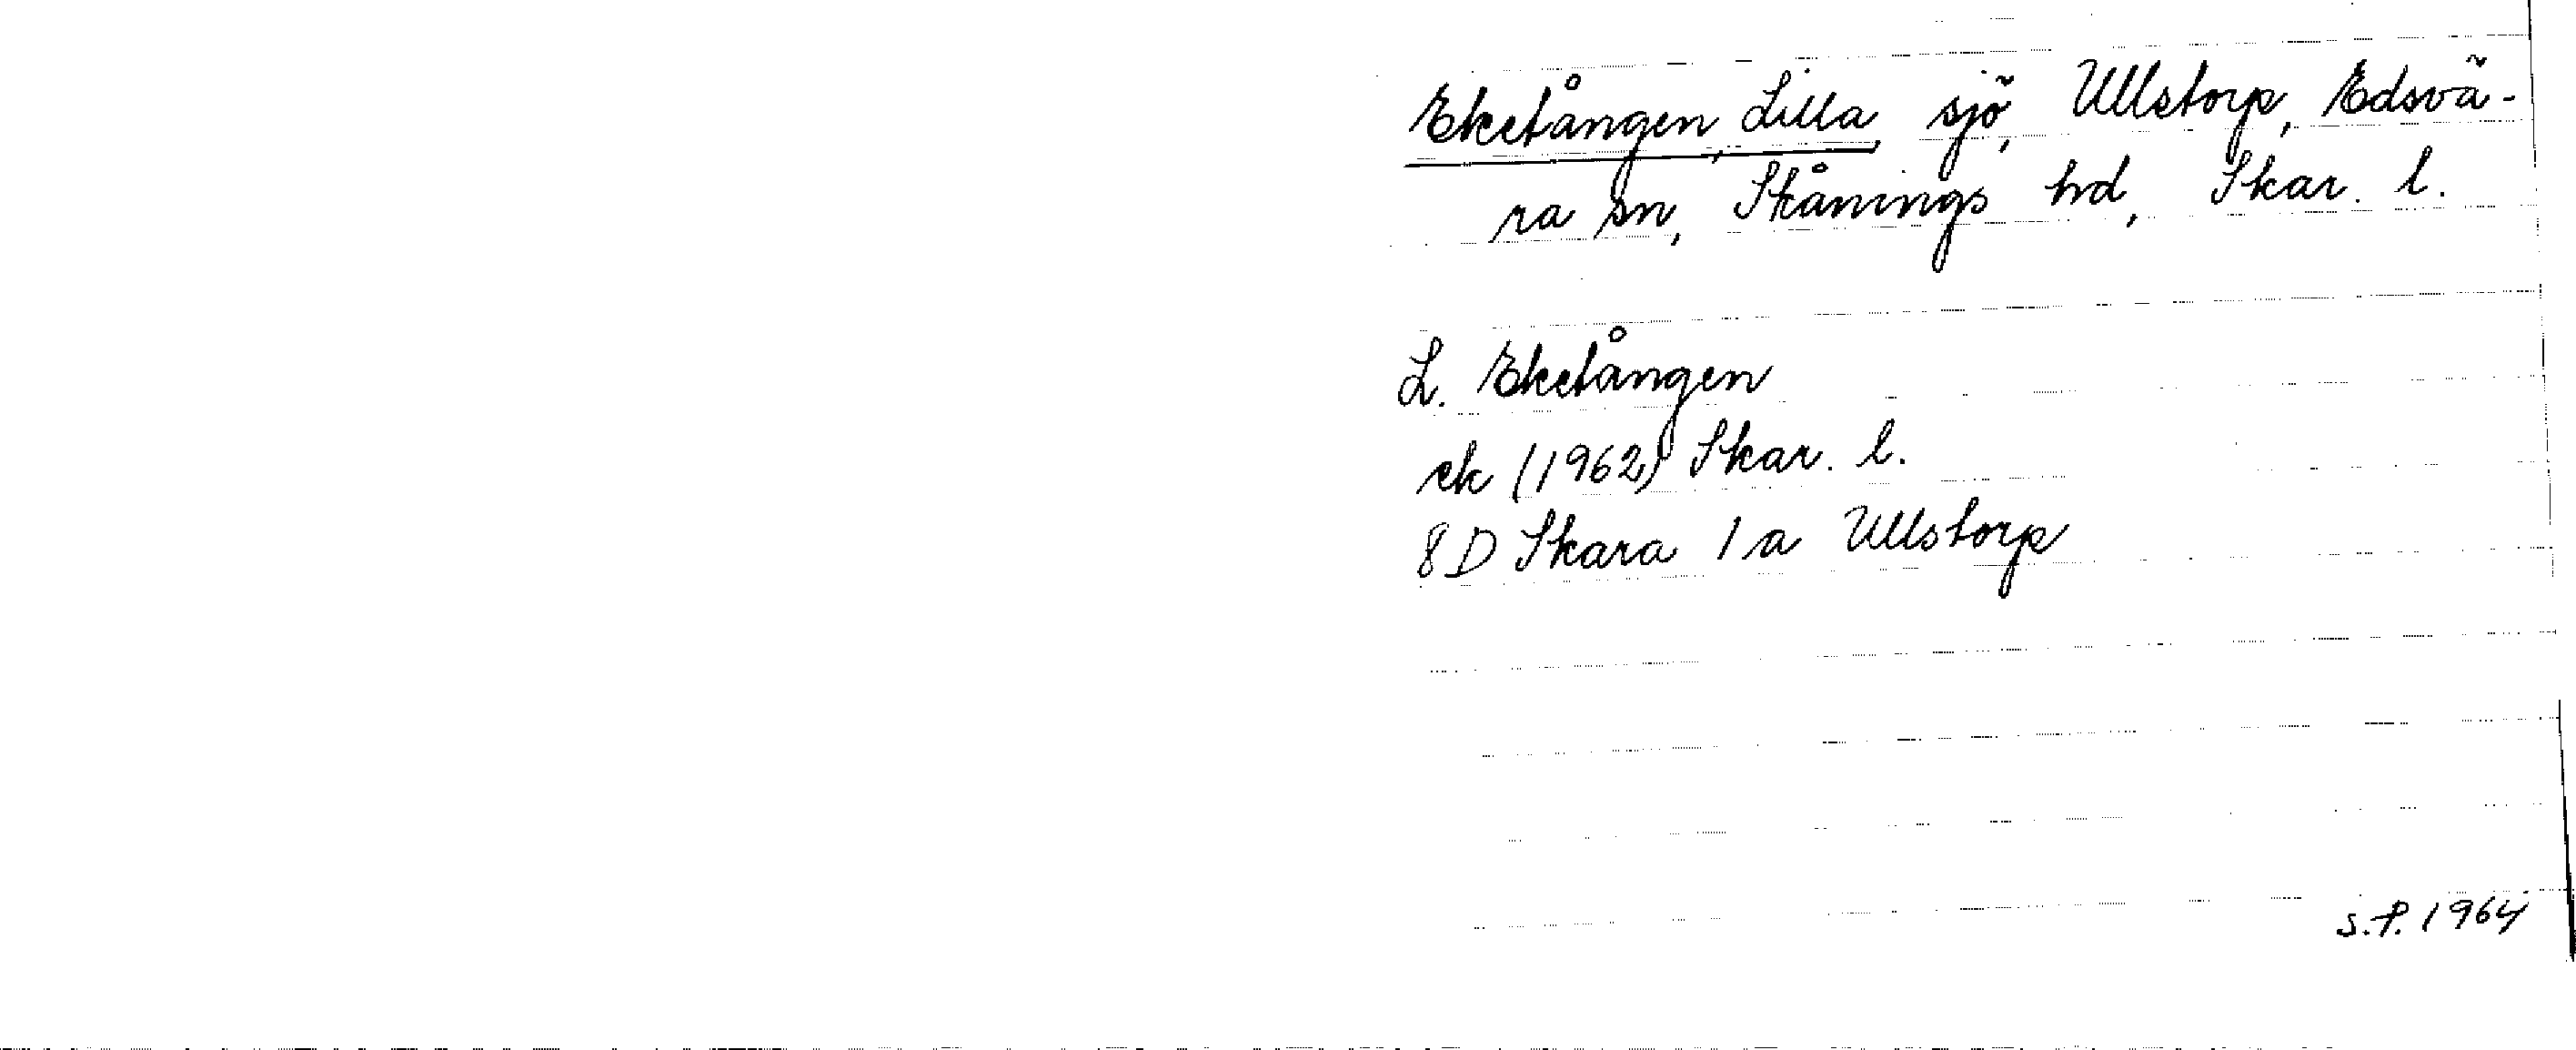 Eketången, Lilla, sjö, Ullstorp, Edsvä-
ra sn, Skånings hd, Skar. l.
L. Eketången
ek (1962) Skar. l.
8D Skara 1a Ullstorp
S.P. 1964